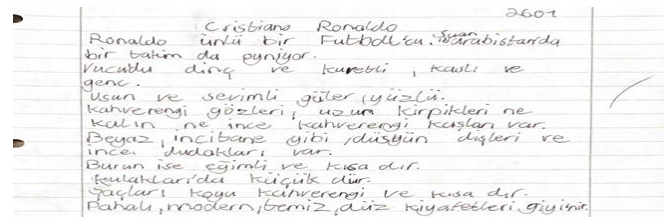 2601
Cristiano Ronaldo
Ronaldo ünlü bir Futbolcu. Şuan Arabistanda
bir takım da oynıyor.
Vücudu dinç ve kuvetli, kaslı ve
genç.
Usun ve sevimli güler yüzlü.
Kahverengi gözleri, uzun kirpikleri ne
kalın ne ince kahverengi kaşları var.
Beyaz, inci tane gibi düzgün dişleri ve
ince dudakları var.
Burun ise eğimli ve kısa dır.
kulakları'da küçük dür.
Saçları koyu kahverengi ve kısa dır.
Pahalı, modern, temiz, düz kiyafetleri giyinir.